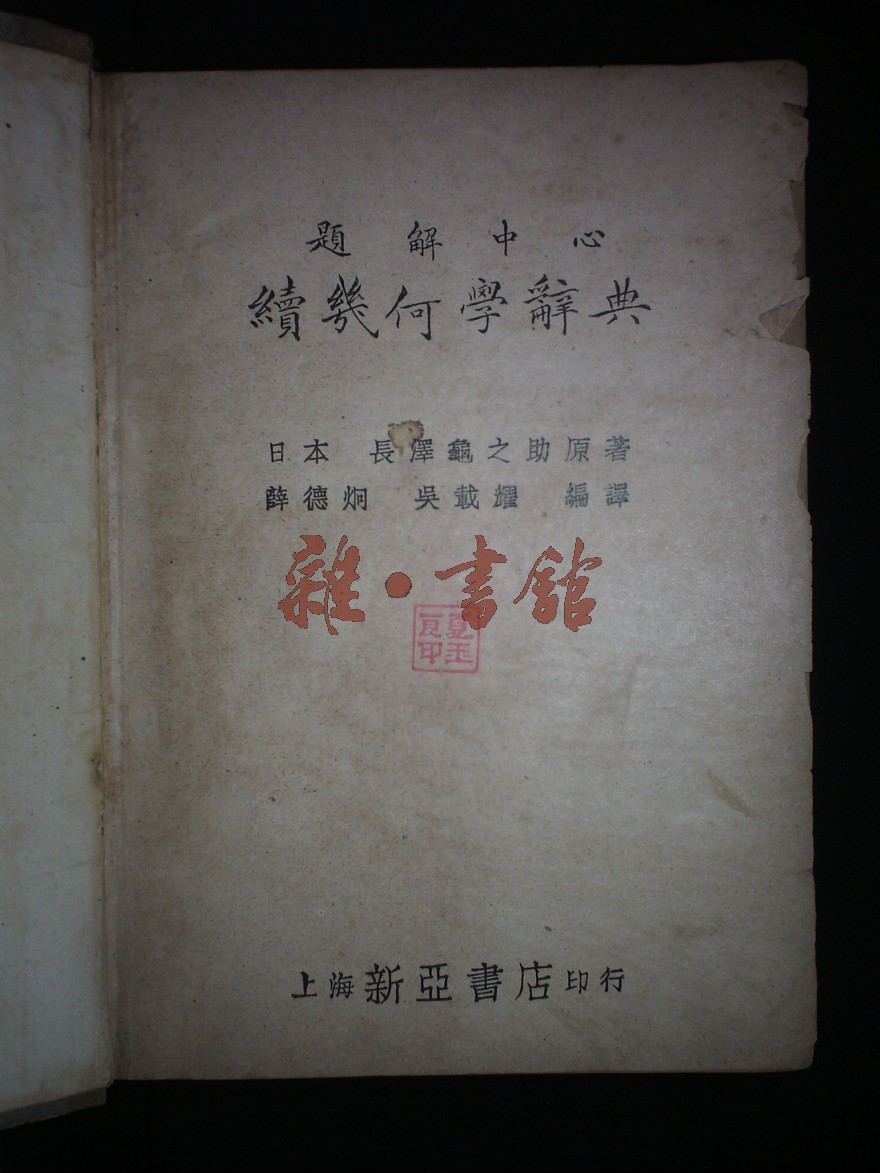 題解中心
續幾何學辭典
日本 長澤龜之助原著
薛德炯 吳載耀 編譯
雜·書館
夏玉百印
上海新亞書店印行